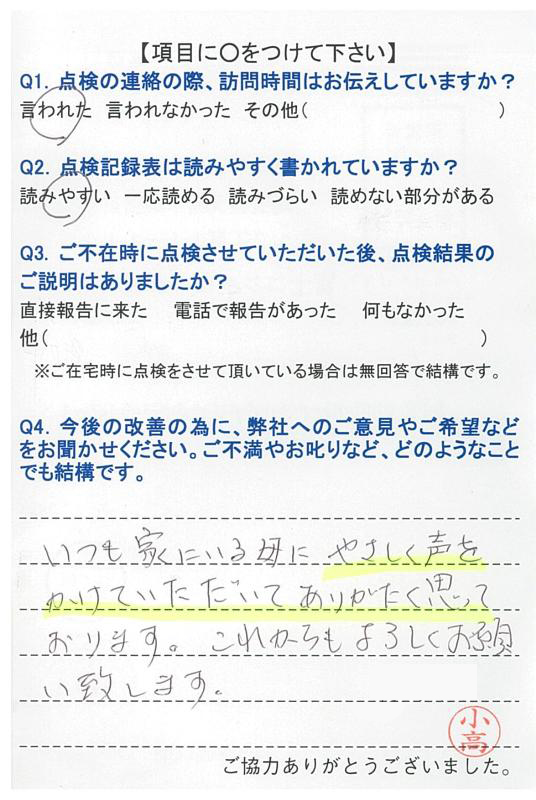 【項目に○をつけて下さい】
Q1. 点検の連絡の際、訪問時間はお伝えしていますか？
言われた 言われなかった その他( )
Q2. 点検記録表は読みやすく書かれていますか？
読みやすい 一応読める 読みづらい 読めない部分がある
Q3. ご不在時に点検させていただいた後、点検結果の
ご説明はありましたか？
直接報告に来た 電話で報告があった 何もなかった
他( )
※ご在宅時に点検をさせて頂いている場合は無回答で結構です。
Q4. 今後の改善の為に、弊社へのご意見やご希望など
をお聞かせください。ご不満やお叱りなど、どのようなこと
でも結構です。
いつも家にいる母にやさしく声を
かけていただいてありがたく思って
おります。これからもよろしくお願
い致します。
小高
ご協力ありがとうございました。